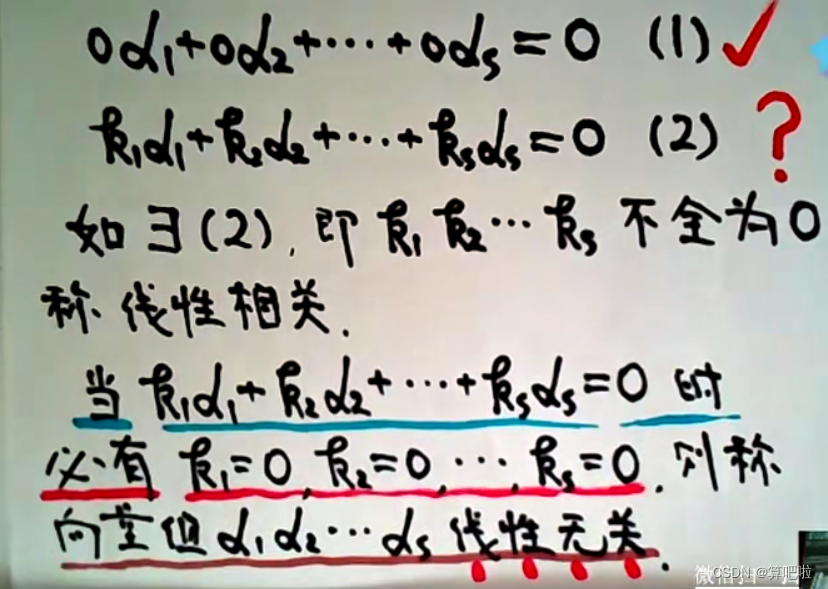 0α₁+0α₂+⋯+0αₛ=0 (1) ✓
k₁α₁+k₂α₂+⋯+kₛαₛ=0 (2) ?
如∃(2),即 k₁ k₂⋯kₛ 不全为0
称线性相关.
当 k₁α₁+k₂α₂+⋯+kₛαₛ=0 时
必有 k₁=0,k₂=0,⋯,kₛ=0.则称
向量组 α₁α₂⋯αₛ 线性无关.
CSDN @算吧啦
微信扫一扫